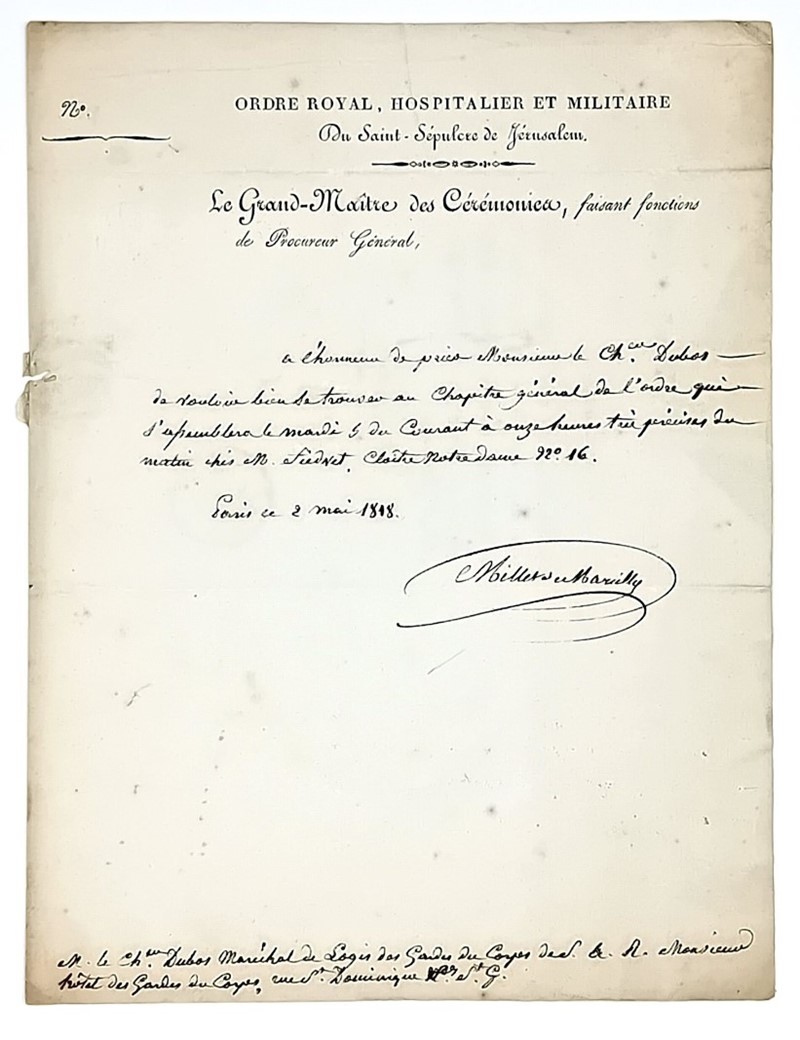 No.
ORDRE ROYAL, HOSPITALIER ET MILITAIRE
Du Saint-Sépulcre de Jérusalem.
Le Grand-Maître des Cérémonies, faisant fonctions
de Procureur Général,
a l'honneur de prier Monsieur le Ch.er Dubos —
de vouloir bien se trouver au Chapitre général de l'ordre qui —
s'assemblera le mardi 5 du Courant à onze heures très précises du
matin chés M. Cloître Notre dame No. 16.
Paris ce 2 mai 1818.
Millet de Marcilly
M. le Ch.er Dubos Maréchal de Logis des Gardes du Corps de S. A. R. Monsieur
hôtel des Gardes du Corps, rue St. Dominique St. G.